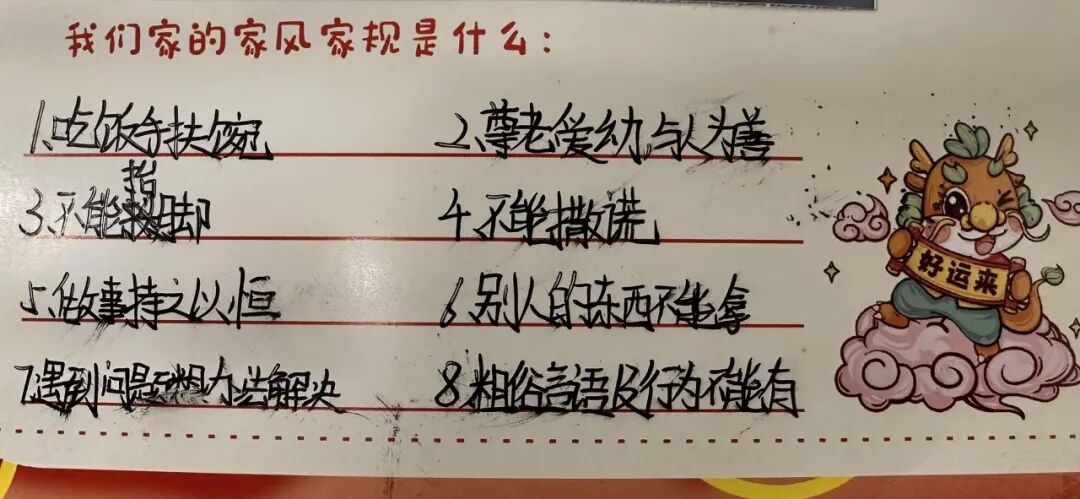 我们家的家风家规是什么：
1.吃饭手扶碗 2.尊老爱幼，与人为善
3.不能抬脚 4.不能撒谎
5.做事持之以恒 6.别人的东西不能拿
7.遇到问题想办法解决 8.粗俗言语及行为不能有
好运来